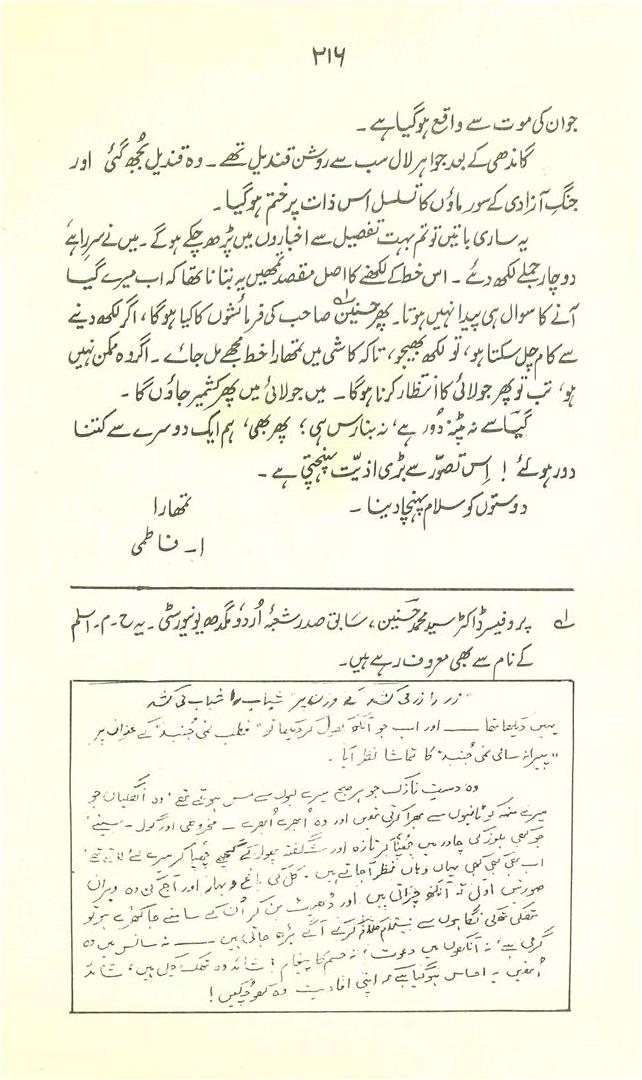 ۲۱۶
جوان کی موت سے واقع ہوگیا ہے۔
گاندھی کے بعد جواہر لال سب سے روشن قندیل تھے۔ وہ قندیل بُجھ گئی اور
جنگِ آزادی کے سورماؤں کا تسلسل اس ذات پر ختم ہوگیا۔
یہ ساری باتیں تو تم بہت تفصیل سے اخباروں میں پڑھ چکے ہوگے۔ میں نے سرِراہے
دو چار جملے لکھ دئے۔ اس خط کے لکھنے کا اصل مقصد تمھیں یہ بتانا تھا کہ اب میرے گیا
آنے کا سوال ہی پیدا نہیں ہوتا۔ پھر حسنین لے صاحب کی فرمائشوں کا کیا ہوگا، اگر لکھ دینے
سے کام چل سکتا ہو، تو لکھ بھیجو، تاکہ کاشی میں تمھارا خط مجھے مل جائے۔ اگر وہ ممکن نہیں
ہو، تب تو پھر جولائی کا انتظار کرنا ہوگا۔ میں جولائی میں پھر کشمیر جاؤں گا۔
گیا سے نہ پٹنہ دُور ہے، نہ بنارس ہی؛ پھر بھی، ہم ایک دوسرے سے کتنا
دور ہوگئے! اِس تصوّر سے بڑی اذیّت پہنچتی ہے۔
دوستوں کو سلام پہنچا دینا۔
تمھارا
ا۔ فاطمی
لے پروفیسر ڈاکٹر سید محمد حسنین، سابق صدر شعبۂ اُردو مگدھ یونیورسٹی۔ یہ ح۔م۔اسلم
کے نام سے بھی معروف رہے ہیں۔
"زر را زر می کشد کے وزن پر" شباب را شباب می کشد
یہیں دیکھا تھا ـــــ اور اب جو آنکھ کھول کر دیکھا تو "قطب نمی جُنبد" کے عنوان پر
"پیرانہ سالی نمی جُنبد" کا تماشا نظر آیا۔
وہ دستِ نازک جو ہر صبح میرے لبوں سے مس ہوتے تھے، وہ اُنگلیاں جو
میرے منہ کو ٹافیوں سے بھرا کرتی تھیں اور وہ اُبھرے اُبھرے ـ مخروطی اور گول ـ سینے
جو کبھی بلوز کی چادر میں چُھپا کر تازہ اور شگفتہ پھول کے گچھے چُھپا کر میرے لئے لاتے تھے
اب بھی کبھی کبھی یہاں وہاں نظر آجاتے ہیں۔ کل کی باغ و بہار اور آج کی وہ ویران
صورتیں اوّل تو آنکھ چراتی ہیں اور ڈھیٹ بن کر اُن کے سامنے جا کھڑے ہو تو
تھکی تھکی نگاہوں سے سلام کرکے آگے بڑھ جاتی ہیں ـــ نہ سانس میں وہ
گرمی ہے، نہ آنکھوں میں دعوت، نہ جسم کا پیغام! شائد وہ تھک چکی ہیں، شائد
اُنھیں یہ احساس ہوگیا ہے کہ اپنی افادیت وہ کھو چکیں!